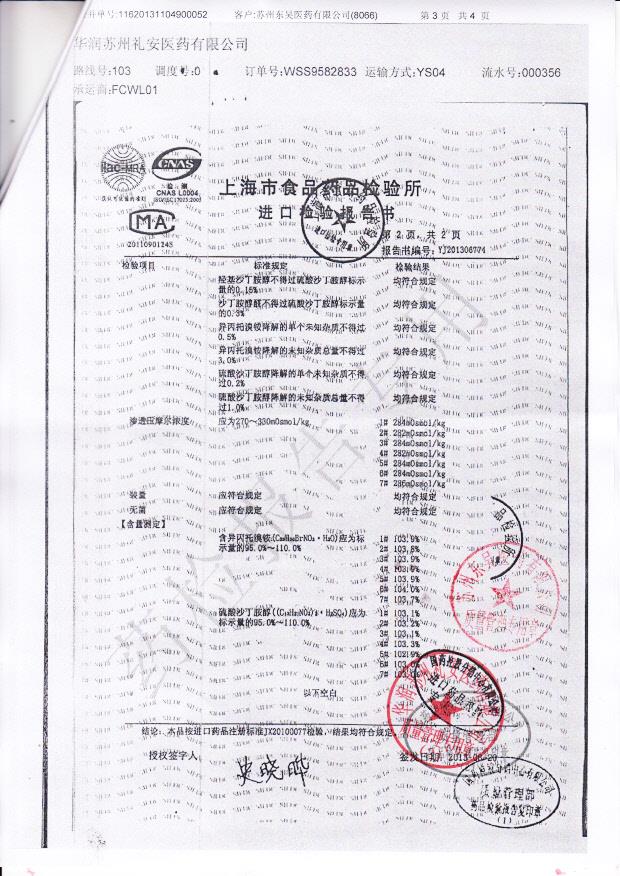 开单号:11620131104900052 客户:苏州东吴医药有限公司(8066) 第 3 页 共 4 页
华润苏州礼安医药有限公司
路线号:103 调度号:0 订单号:WSS9582833 运输方式:YS04 流水号:000356
承运商:FCWL01
ilac-MRA CNAS
检 测
CNAS L0004
MA
2011090124S
上海市食品药品检验所
进口检验报告书
第 2 页, 共 2 页
报告书编号: YJ201306774
检验项目 标准规定 检验结果
羟基沙丁胺醇不得过硫酸沙丁胺醇标示 均符合规定
量的0.15%
沙丁胺醇酮不得过硫酸沙丁胺醇标示量 均符合规定
的0.3%
异丙托溴铵降解的单个未知杂质不得过 均符合规定
0.5%
异丙托溴铵降解的未知杂质总量不得过 均符合规定
3.0%
硫酸沙丁胺醇降解的单个未知杂质不得 均符合规定
过0.2%
硫酸沙丁胺醇降解的未知杂质总量不得 均符合规定
过1.0%
渗透压摩尔浓度 应为270～330mOsmol/kg 1# 284mOsmol/kg
2# 282mOsmol/kg
3# 284mOsmol/kg
4# 282mOsmol/kg
5# 284mOsmol/kg
6# 284mOsmol/kg
7# 286mOsmol/kg
装量 应符合规定 均符合规定
无菌 应符合规定 均符合规定
【含量测定】
含异丙托溴铵(C₂₀H₃₀BrNO₃·H₂O)应为标 1# 103.9%
示量的95.0%～110.0% 2# 103.8%
3# 103.9%
4# 103.9%
5# 103.9%
6# 104.0%
7# 103.7%
硫酸沙丁胺醇((C₁₃H₂₁NO₃)₂·H₂SO₄)应为 1# 103.1%
标示量的95.0%～110.0% 2# 103.2%
3# 103.1%
4# 103.3%
5# 102.9%
6# 103.0%
以下空白
结论: 本品按进口药品注册标准JX20100077检验, 结果均符合规定。
授权签字人 史晓晔 签发日期 2013-06-20
质量管理部
药品检验报告复印章
(1)
药检报告专用